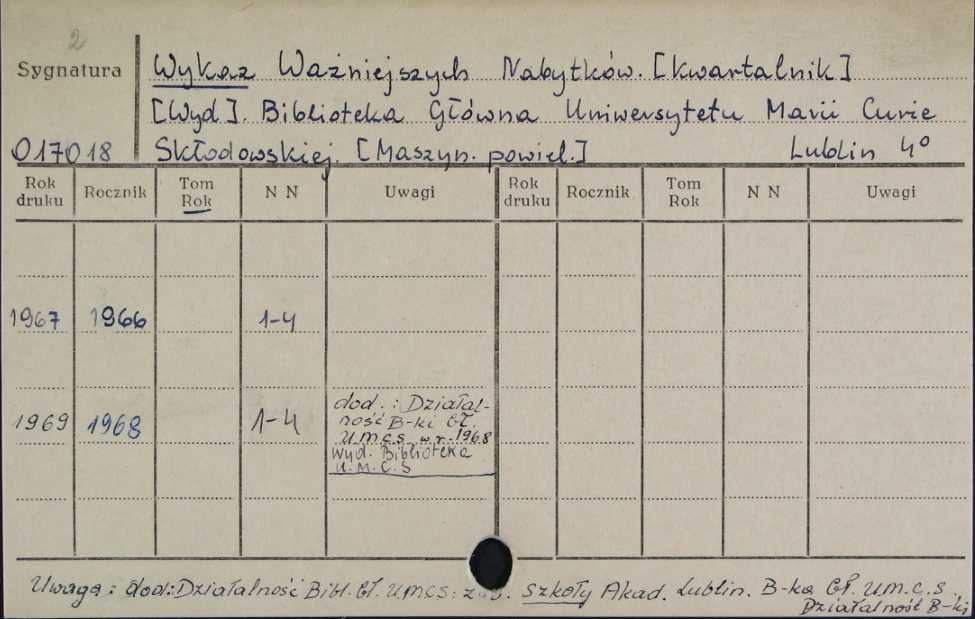 2
Sygnatura
Wykaz Ważniejszych Nabytków. [Kwartalnik]
[Wyd]. Biblioteka Główna Uniwersytetu Marii Curie
017018 Skłodowskiej. [Maszyn. powiel.] Lublin 4°
Rok druku Rocznik Tom Rok N N Uwagi Rok druku Rocznik Tom Rok N N Uwagi
1967 1966 1-4
1969 1968 1-4 dod.: Działal-
ność B-ki Gł.
U.m.c.s. w r. 1968
wyd. Biblioteka
U.M.C.S
Uwaga: dod.: Działalność Bibl. Gł. U.M.C.S: szkoły Akad. Lublin. B-ka Gł. U.m.c.s.
Działalność B-ki